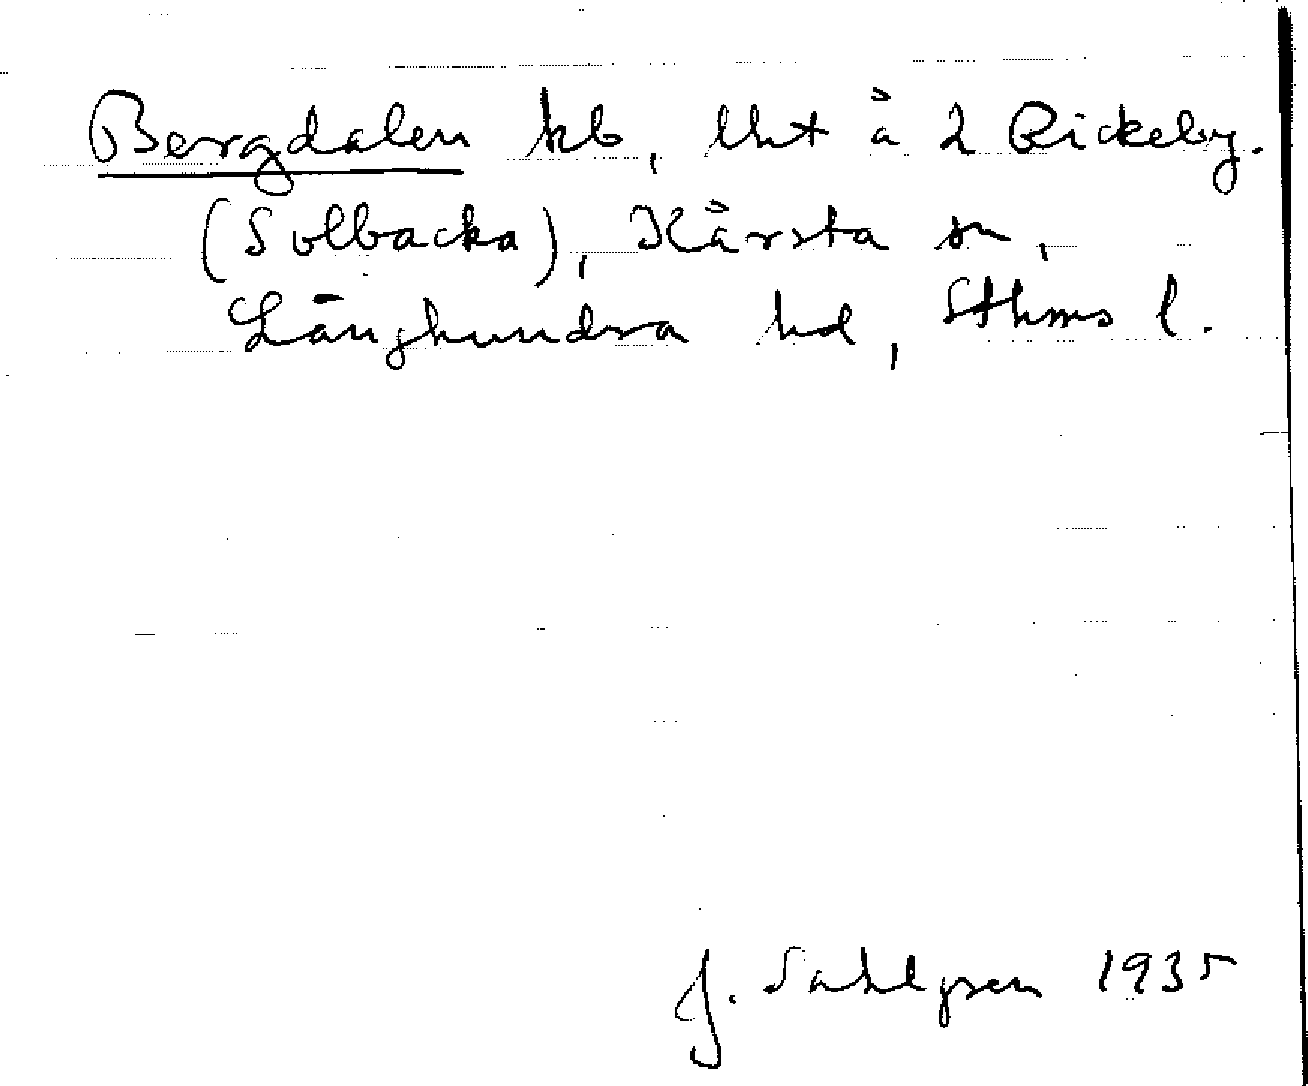 Bergdalen kb, lht å 2 Rickeby.
(Solbacka), Kårsta sn,
Långhundra hd, Sthms l.
J. Sahlgren 1935